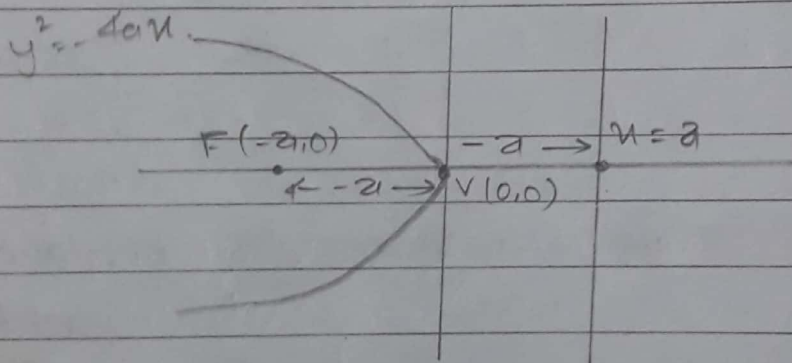 y² = -4ax.
F(-a,0)
- a → x = a
← -a → V(0,0)